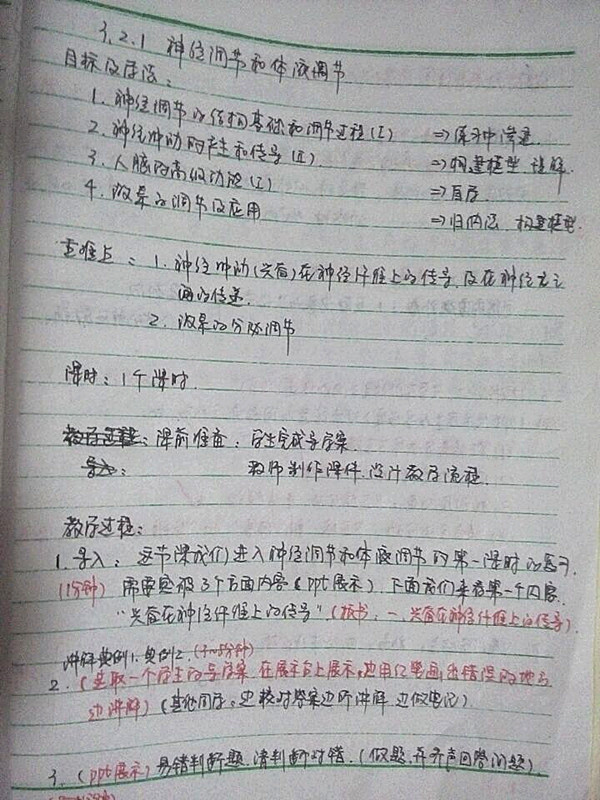 3.2.1 神经调节和体液调节
目标及方法:
1. 神经调节的结构基础和调节过程(I) ⇒复习中渗透.
2. 神经冲动的产生和传导(II). ⇒构建模型 理解.
3. 人脑的高级功能(I) ⇒自学.
4. 激素的调节及应用 ⇒归纳法 构建模型.
重难点: 1. 神经冲动(兴奋)在神经纤维上的传导及在神经元之
间的传递.
2. 激素的分泌调节
课时: 1个课时.
课前准备: 学生完成导学案.
教师制作课件,设计教学流程.
教学过程:
1. 导入: 这节课我们进入神经调节和体液调节的第一课时的复习.
(1分钟) 需要突破3个方面内容(ppt展示). 下面我们来看第一个内容.
"兴奋在神经纤维上的传导"(板书: 一、兴奋在神经纤维上的传导).
讲解典例1.典例2.
2. (选取一个学生的导学案 在展示台上展示,边用红笔画出错误的地方
边讲解) (其他同学: 边核对学案边听讲解 边做笔记)
3. (ppt展示) 易错判断题.请判断对错. (做题,并齐声回答问题)